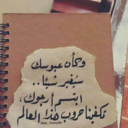 وكأن عبوسك
سيغير شيئا..
ابتسم أرجوك،
تكفينا حروب هذا العالم